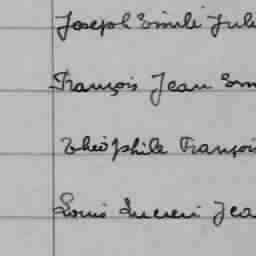 Joseph Emile Jule
François Jean Em
Théophile François
Louis Lucien Jea